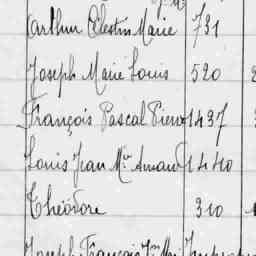 Arthur Célestin Marie 731
Joseph Marie Louis 520
François Pascal Pierre 1437
Louis Jean Mie Amand 1440
Théodore 310
Joseph François